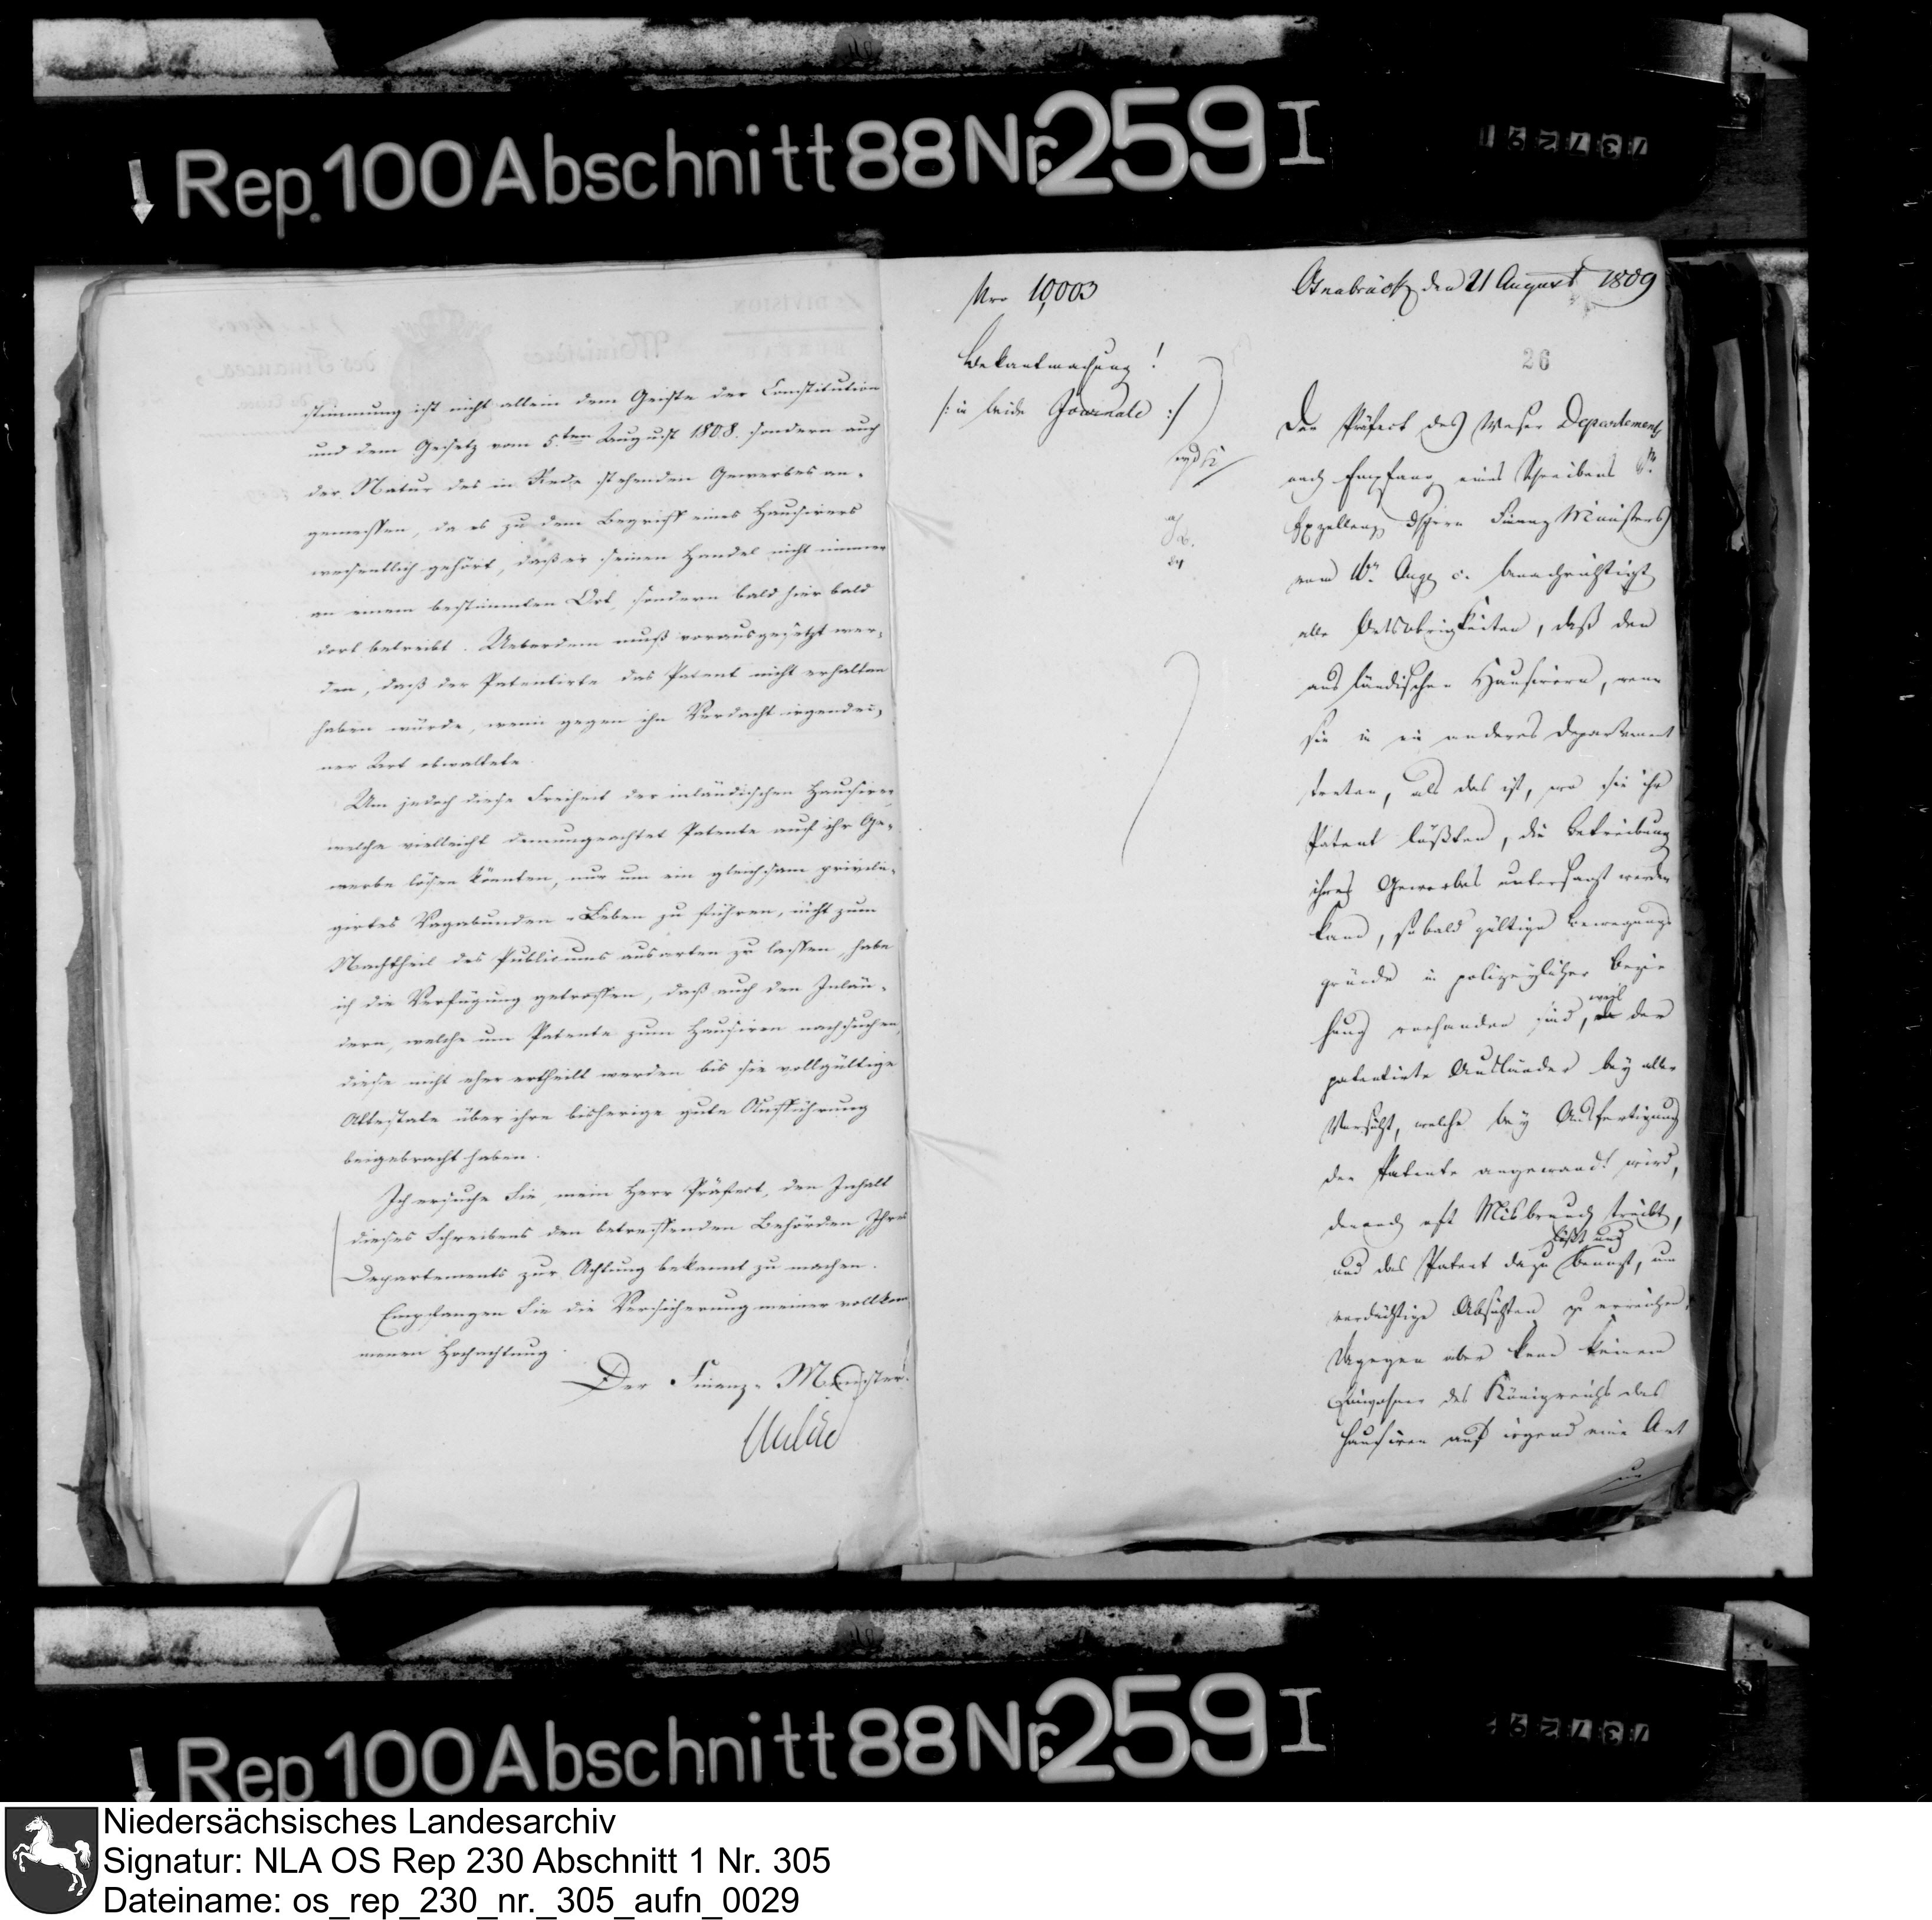 Rep. 100 Abschnitt 88 Nr. 259 I
stimmung ist nicht allein dem Geiste der Constitution
und dem Gesetz vom 5.ten August 1808. sondern auch
der Natur des in Rede stehenden Gewerbes an-
gemessen, da es zu dem Begriff eines Hausirers
wesentlich gehört, daß er seinen Handel nicht immer
an einem bestimmten Ort, sondern bald hier bald
dort betreibt. Ueberdem muß vorausgesetzt wer-
den, daß der Patentirte das Patent nicht erhalten
haben würde, wenn gegen ihn Verdacht irgendei-
ner Art obwaltete.
Um jedoch diese Freiheit der inländischen Hausirer,
welche vielleicht demungeachtet Patente auf ihr Ge-
werbe lösen könnten, nur um ein gleichsam privile-
girtes Vagabunden-Leben zu führen, nicht zum
Nachtheil des Publicums ausarten zu lassen, habe
ich die Verfügung getroffen, daß auch den Inlän-
dern, welche um Patente zum Hausiren nachsuchen,
diese nicht eher ertheilt werden bis sie vollgültige
Attestate über ihre bisherige gute Aufführung
beigebracht haben.
Ich ersuche Sie, mein Herr Präfect, den Inhalt
dieses Schreibens den betreffenden Behörden Ihres
Departements zur Achtung bekannt zu machen.
Empfangen Sie die Versicherung meiner vollkom
menen Hochachtung.
Der Finanz-Minister.
Nro 10,003
Bekantmachung!
/: in beide Journale :/
Osnabrück den 21 August 1809
26
Der Präfect des Weser Departements
nach Empfang eines Schreibens Sr.
Exzellenz des Herrn Finanz Ministers
vom Aug c. benachrichtigt
alle Ortsobrigkeiten, daß den
ausländischen Hausirern, wenn
sie in ein anderes Departement
treten, als das ist, wo sie ihr
Patent lößten, die Betreibung
ihres Gewerbes untersagt werden
kann, sobald gültige Bewegungs
gründe in polizeylicher Bezie
hung vorhanden sind, weil der
patentirte Ausländer bey aller
Vorsicht, welche bey Ausfertigung
der Patente angewandt wird,
dennoch oft Misbrauch treibt,
und das Patent dazu lößt und benuzt, um
verdächtige Absichten zu erreichen.
Dagegen aber kann keinem
Einwohner des Königreichs das
Hausiren auf irgend eine Art
Rep. 100 Abschnitt 88 Nr. 259 I
Niedersächsisches Landesarchiv
Signatur: NLA OS Rep 230 Abschnitt 1 Nr. 305
Dateiname: os_rep_230_nr._305_aufn_0029